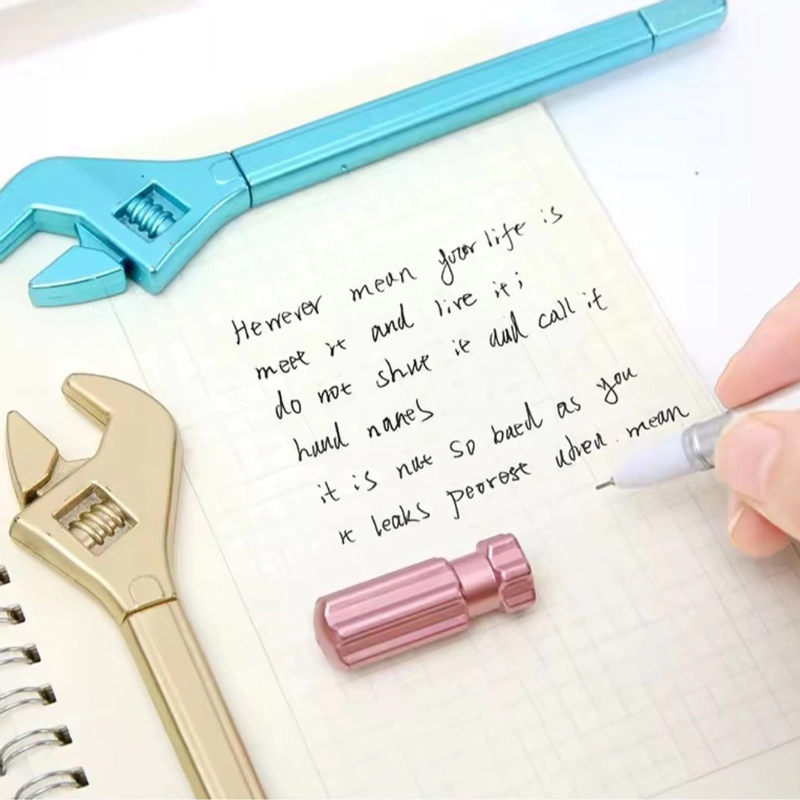 Herrever mean your life is
meet it and live it;
do not shut it and call it
hund nanes
it is not so baed as you
it leaks peorest when mean